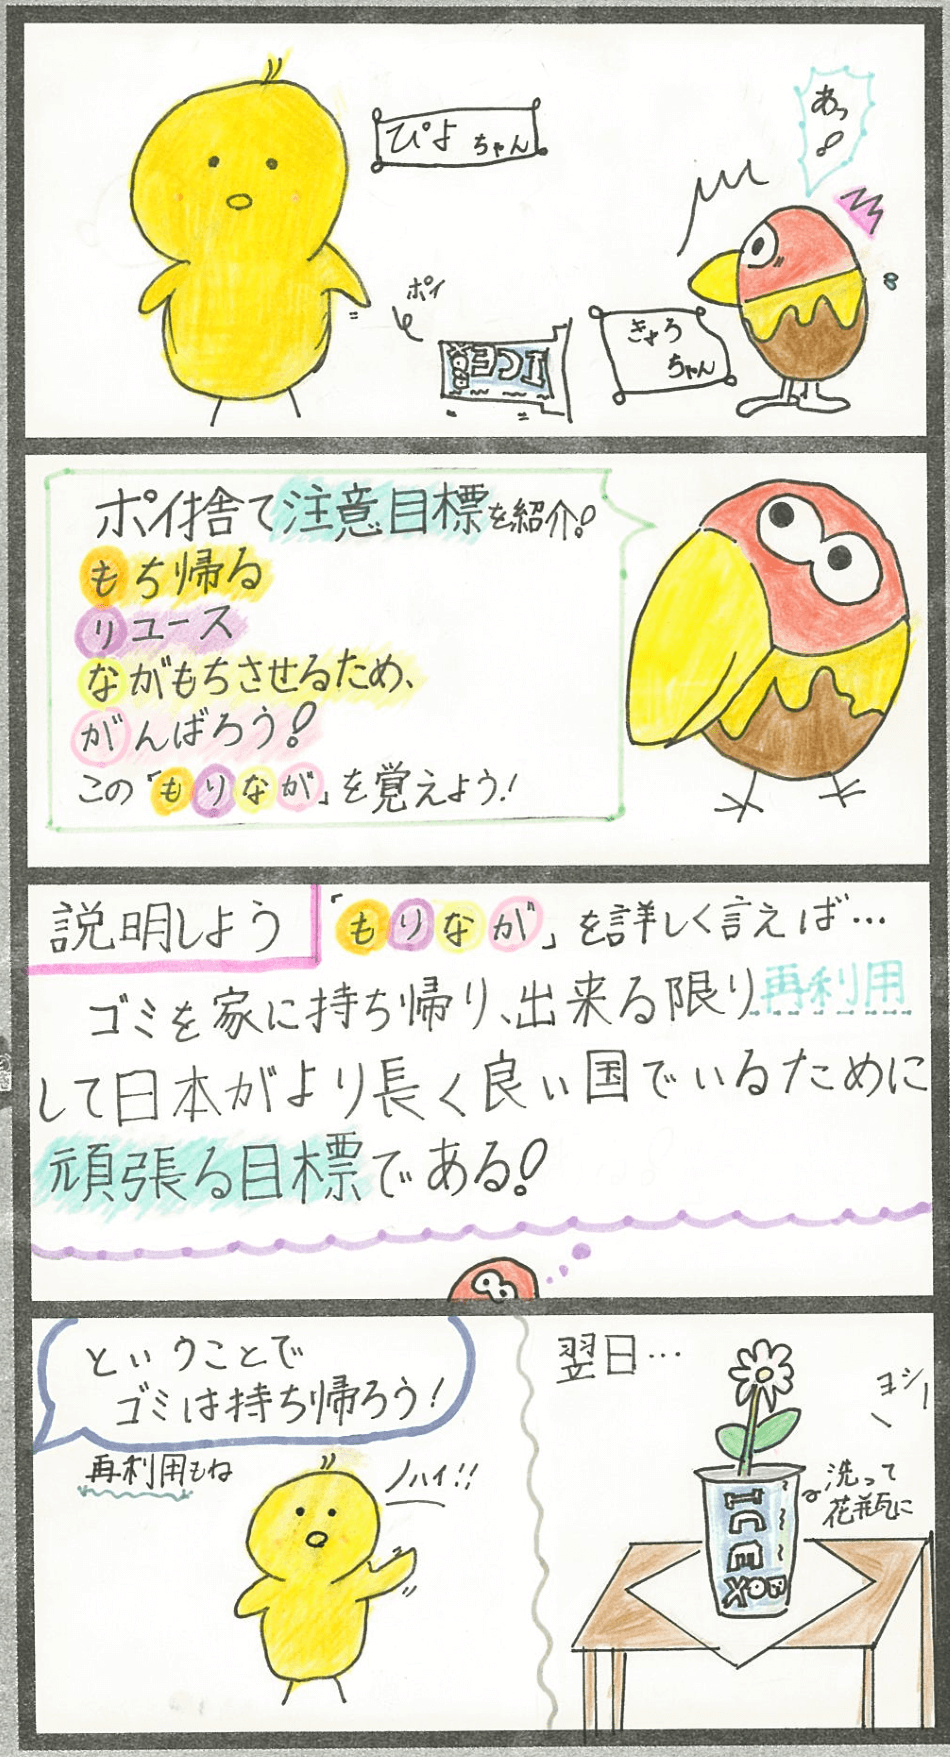 ぴよちゃん
あっ!
ポイ
ICEBOX
きょろ
ちゃん
ポイ捨て注意目標を紹介!
もち帰る
リユース
ながもちさせるため、
がんばろう!
この「もりなが」を覚えよう!
説明しよう
「もりなが」を詳しく言えば…
ゴミを家に持ち帰り、出来る限り再利用
して日本がより長く良い国でいるために
頑張る目標である!
ということで
ゴミは持ち帰ろう!
再利用もね
ハイ!!
翌日…
ヨシ!
洗って
花瓶に
ICEBOX